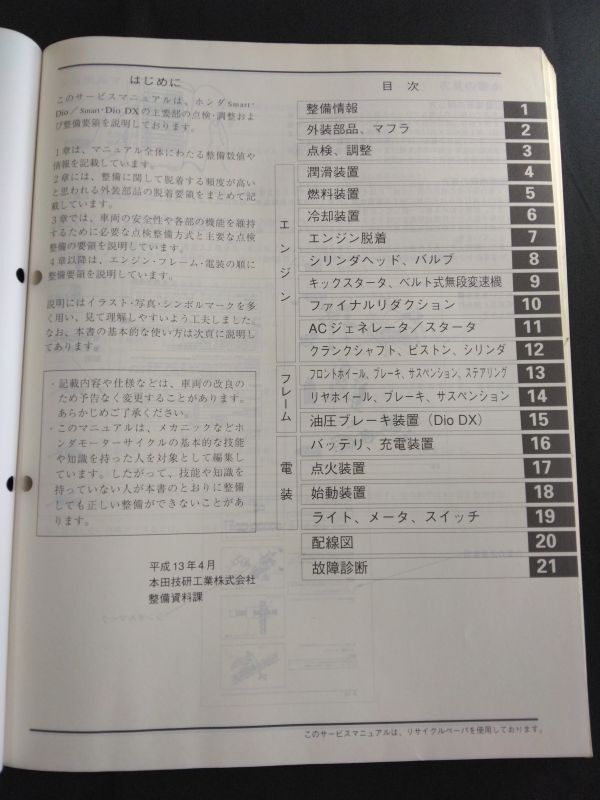 はじめに
このサービスマニュアルは、ホンダSmart・
Dio／Smart・Dio DXの主要部の点検・調整およ
び整備要領を説明しております。
1章は、マニュアル全体にわたる整備数値や
情報を記載しています。
2章には、整備に関して脱着する頻度が高い
と思われる外装部品の脱着要領をまとめて記
載しています。
3章では、車両の安全性や各部の機能を維持
するために必要な点検整備方式と主要な点検
整備の要領を説明しています。
4章以降は、エンジン・フレーム・電装の順に
整備要領を説明しています。
説明にはイラスト・写真・シンボルマークを多
く用い、見て理解しやすいよう工夫しました。
なお、本書の基本的な使い方は次頁に説明し
てあります。
・記載内容や仕様などは、車両の改良のた
め予告なく変更することがあります。
あらかじめご了承ください。
・このマニュアルは、メカニックなどホ
ンダモーターサイクルの基本的な技能
や知識を持った人を対象として編集し
ています。したがって、技能や知識を
持っていない人が本書のとおりに整備
しても正しい整備ができないことがあ
ります。
平成13年4月
本田技研工業株式会社
整備資料課
目 次
整備情報 1
外装部品、マフラ 2
点検、調整 3
エンジン
潤滑装置 4
燃料装置 5
冷却装置 6
エンジン脱着 7
シリンダヘッド、バルブ 8
キックスタータ、ベルト式無段変速機 9
ファイナルリダクション 10
ACジェネレータ／スタータ 11
クランクシャフト、ピストン、シリンダ 12
フレーム
フロントホイール、ブレーキ、サスペンション、ステアリング 13
リヤホイール、ブレーキ、サスペンション 14
油圧ブレーキ装置（Dio DX） 15
電装
バッテリ、充電装置 16
点火装置 17
始動装置 18
ライト、メータ、スイッチ 19
配線図 20
故障診断 21
このサービスマニュアルは、リサイクルペーパを使用しております。